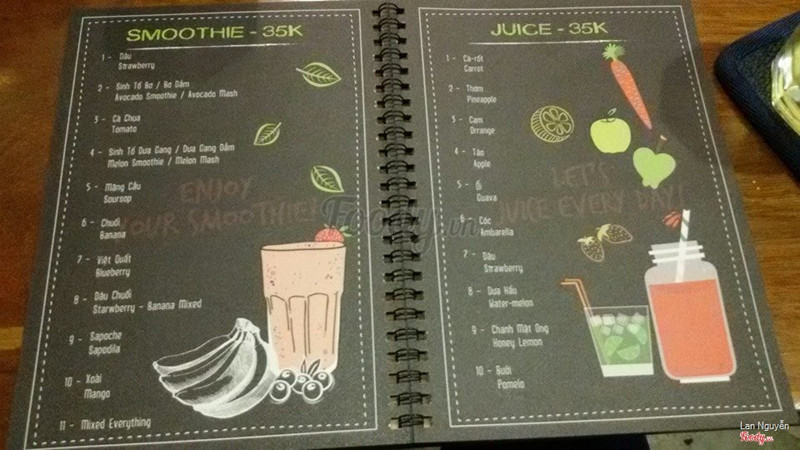 SMOOTHIE - 35K
1 - Dâu
Strawberry
2 - Sinh Tố Bơ / Bơ Dầm
Avocado Smoothie / Avocado Mash
3 - Cà Chua
Tomato
4 - Sinh Tố Dưa Gang / Dưa Gang Dầm
Melon Smoothie / Melon Mash
5 - Mãng Cầu
Soursop
6 - Chuối
Banana
7 - Việt Quất
Blueberry
8 - Dâu Chuối
Starwberry - Banana Mixed
9 - Sapoche
Sapodila
10 - Xoài
Mango
11 - Mixed Everything
ENJOY
YOUR SMOOTHIE!
JUICE - 35K
1 - Cà-rốt
Carrot
2 - Thơm
Pineapple
3 - Cam
Orrange
4 - Táo
Apple
5 - Ổi
Guava
6 - Cóc
Ambarella
7 - Dâu
Strawberry
8 - Dưa Hấu
Water-melon
9 - Chanh Mật Ong
Honey Lemon
10 - Bưởi
Pomelo
LET'S
JUICE EVERY DAY!
Foody.vn
Lan Nguyễn
Foody.vn